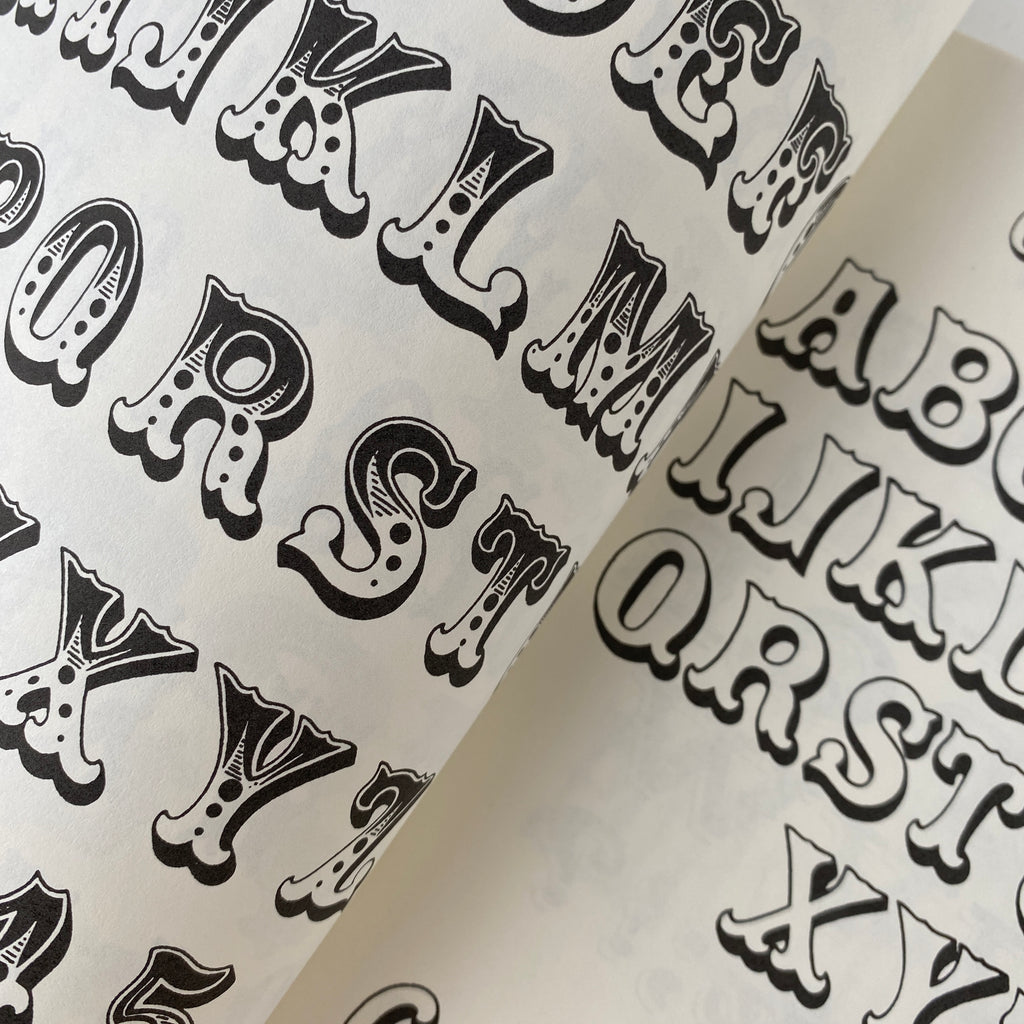 E F
J K L M
P Q R S T
X Y Z
5
A B
I J K L
Q R S T
X Y